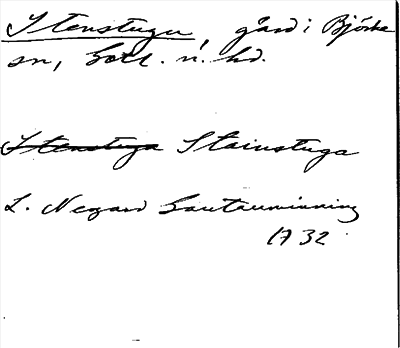 Stenstugu, gård i Björke
sn, Gotl. n. hd.
Stenstuga Stainstuga
L. Negard Gautauminning
1932